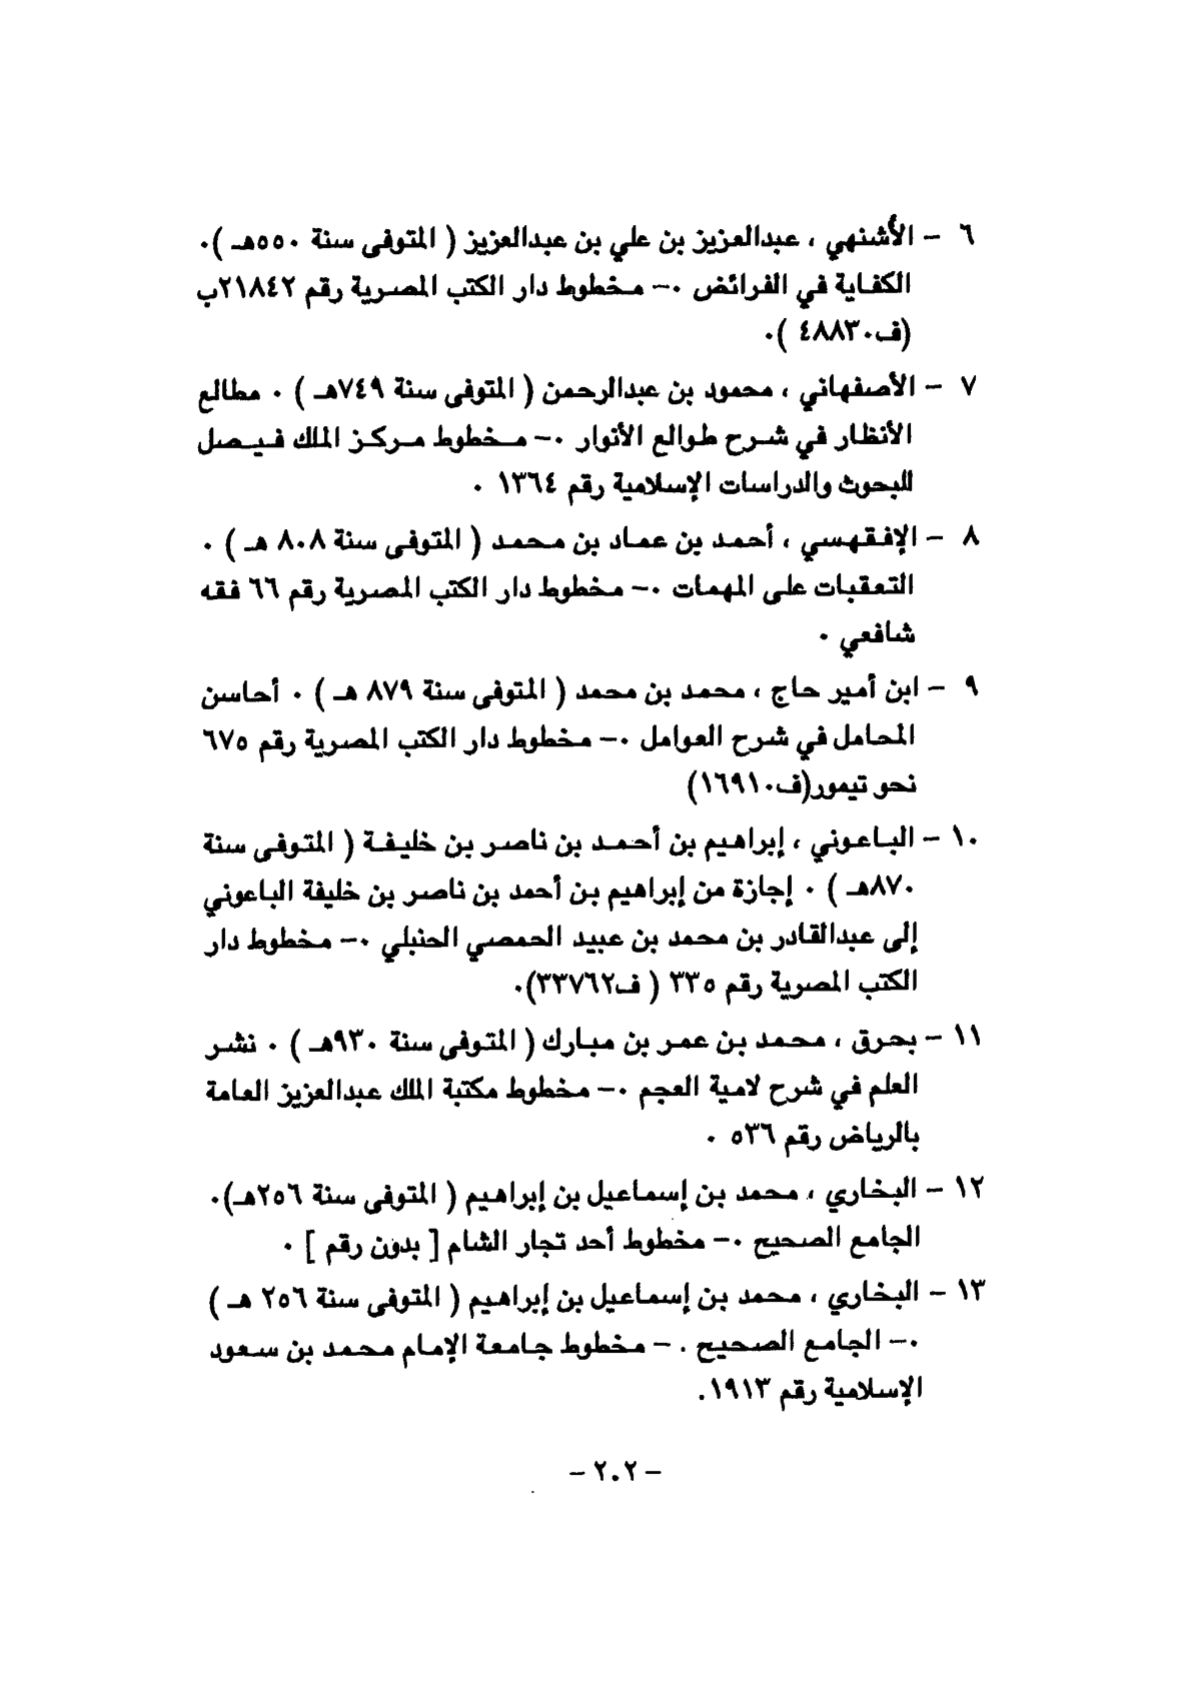 ٦ – الأُشنهي ، عبدالعزيز بن علي بن عبدالعزيز ( المتوفى سنة ٥٥٠هـ ).
الكفاية في الفرائض ٠– مخطوط دار الكتب المصرية رقم ٢١٨٤٢ب
(ف٤٨٨٣٠ )٠
٧ – الأصفهاني ، محمود بن عبدالرحمن ( المتوفى سنة ٧٤٩هـ ) ٠ مطالع
الأنظار في شرح طوالع الأنوار ٠– مخطوط مركز الملك فيصل
للبحوث والدراسات الإسلامية رقم ١٣٦٤ ٠
٨ – الإفقهسي ، أحمد بن عماد بن محمد ( المتوفى سنة ٨٠٨ هـ ) ٠
التعقبات على المهمات ٠– مخطوط دار الكتب المصرية رقم ٦٦ فقه
شافعي ٠
٩ – ابن أمير حاج ، محمد بن محمد ( المتوفى سنة ٨٧٩ هـ ) ٠ أحاسن
المحامل في شرح العوامل ٠– مخطوط دار الكتب المصرية رقم ٦٧٥
نحو تيمور(ف١٦٩١٠)
١٠ – الباعوني ، إبراهيم بن أحمد بن ناصر بن خليفة ( المتوفى سنة
٨٧٠هـ ) ٠ إجازة من إبراهيم بن أحمد بن ناصر بن خليفة الباعوني
إلى عبدالقادر بن محمد بن عبيد الحمصي الحنبلي ٠– مخطوط دار
الكتب المصرية رقم ٣٣٥ ( ف٣٣٧٦٢)٠
١١ – بحرق ، محمد بن عمر بن مبارك ( المتوفى سنة ٩٣٠هـ ) ٠ نشر
العلم في شرح لامية العجم ٠– مخطوط مكتبة الملك عبدالعزيز العامة
بالرياض رقم ٥٣٦ ٠
١٢ – البخاري ، محمد بن إسماعيل بن إبراهيم ( المتوفى سنة ٢٥٦هـ)٠
الجامع الصحيح ٠– مخطوط أحد تجار الشام [ بدون رقم ] ٠
١٣ – البخاري ، محمد بن إسماعيل بن إبراهيم ( المتوفى سنة ٢٥٦ هـ )
٠– الجامع الصحيح . – مخطوط جامعة الإمام محمد بن سعود
الإسلامية رقم ١٩١٣.
– ٢٠٢ –